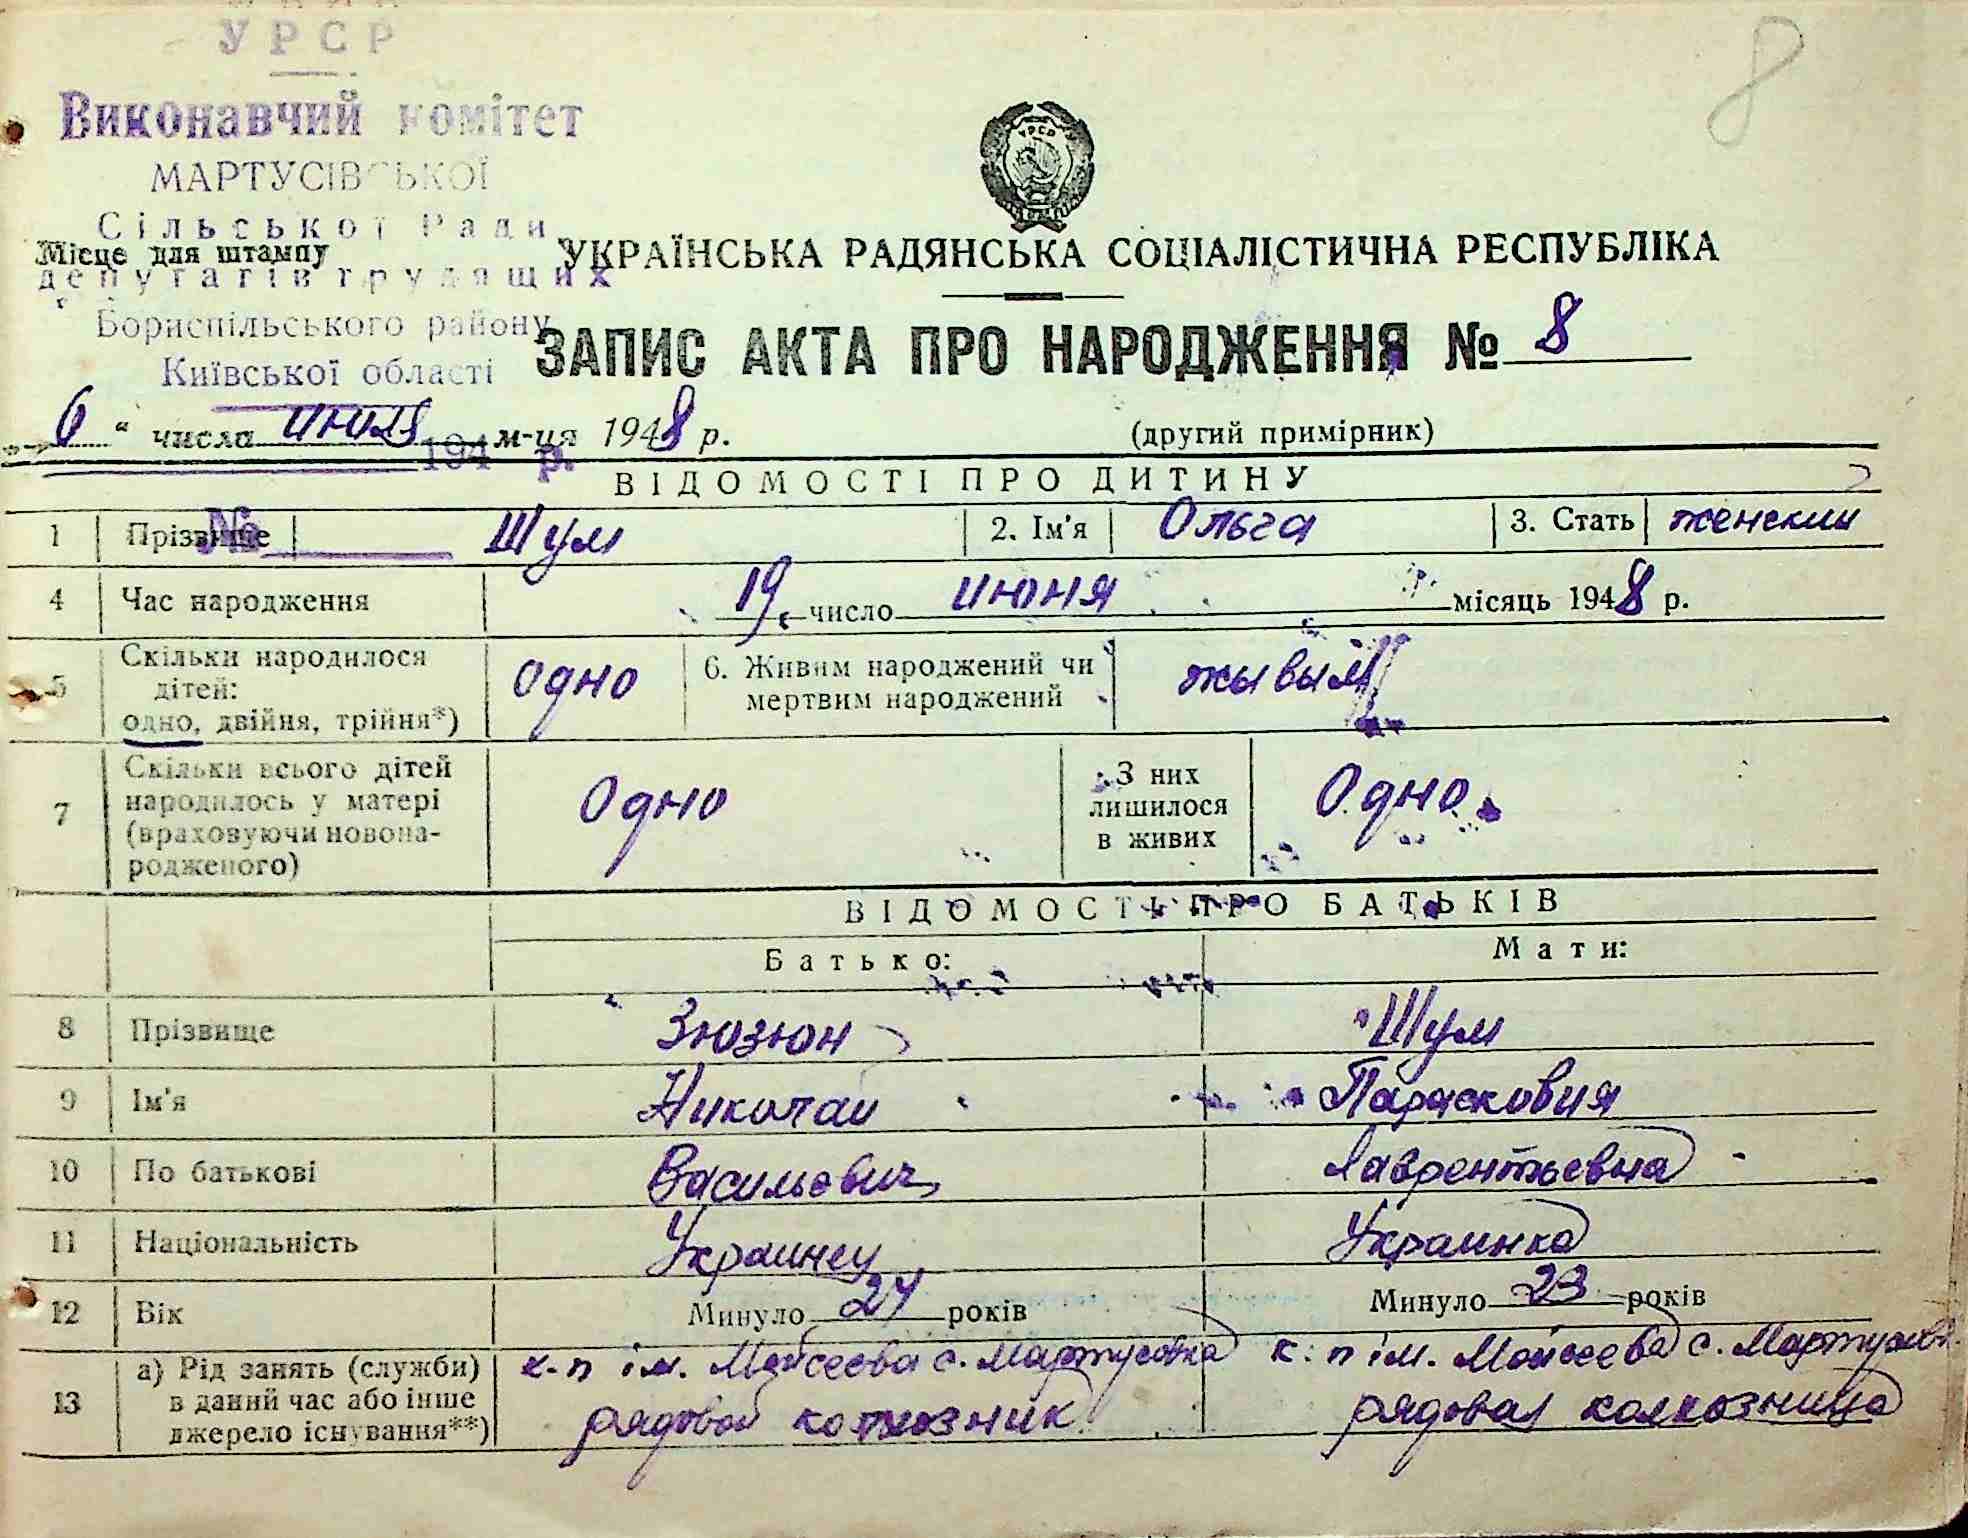 УРСР
Виконавчий комітет
МАРТУСІВСЬКОЇ
Сільської Ради
депутатів трудящих
Бориспільського району
Київської області
194 р.
№
8
Місце для штампу
УКРАЇНСЬКА РАДЯНСЬКА СОЦІАЛІСТИЧНА РЕСПУБЛІКА
ЗАПИС АКТА ПРО НАРОДЖЕННЯ № 8
6 " числа июля м-ця 1948 р.
(другий примірник)
ВІДОМОСТІ ПРО ДИТИНУ
1 Прізвище Шум 2. Ім'я Ольга 3. Стать женский
4 Час народження 19 число июня місяць 1948 р.
5 Скільки народилося дітей: одно, двійня, трійня*) одно 6. Живим народжений чи мертвим народжений жывым
7 Скільки всього дітей народилось у матері (враховуючи новонародженого) Одно З них лишилося в живих Одно.
ВІДОМОСТІ ПРО БАТЬКІВ
Батько: Мати:
8 Прізвище Зюзюн Шум
9 Ім'я Николай Парасковия
10 По батькові Васильевич Лаврентьевна
11 Національність Украинец Украинка
12 Вік Минуло 24 років Минуло 23 років
13 а) Рід занять (служби) в даний час або інше джерело існування**) к-п ім. Мойсеева с. Мартусовка рядовой колхозник к-п ім. Мойсеева с. рядовая колхозница